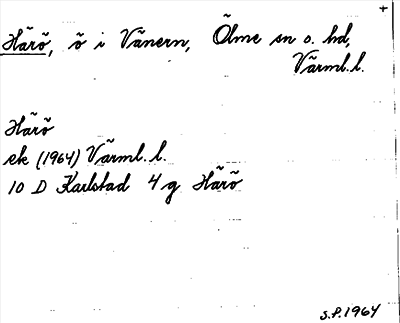 Härö, ö i Vänern, Ölme sn o. hd,
Värml. l.
Härö
ek (1964) Värml. l.
10 D Karlstad 4 g Härö
S.P. 1964